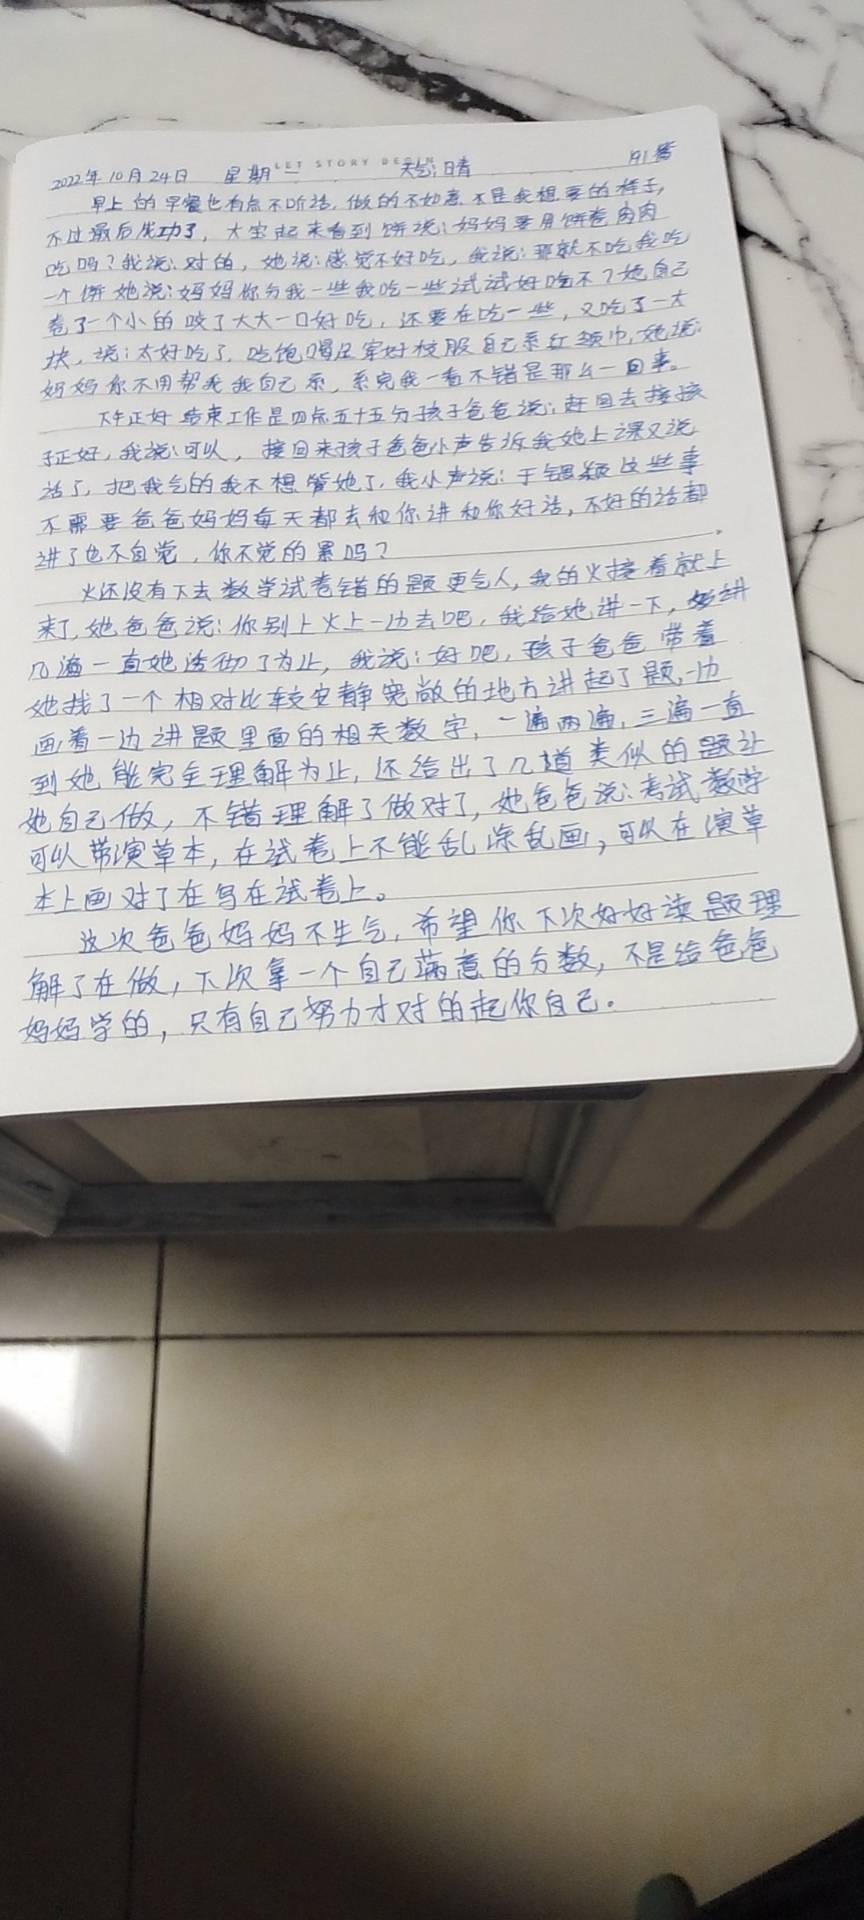 LET STORY BEGIN
2022年10月24日 星期一 天气:晴
早上的早餐也有点不听话,做的不如意,不是我想要的样子,
不过最后成功了,大宝起来看到饼说:妈妈要用饼卷肉肉
吃吗?我说:对的,她说:感觉不好吃,我说:那就不吃我吃
一个饼她说:妈妈你分我一些我吃一些试试好吃不?她自己
卷了一个小的咬了大大一口好吃,还要在吃一些,又吃了一大
块,说:太好吃了,吃饱喝足穿好校服自己系红领巾,她说:
妈妈你不用帮我我自己系,系完我一看不错是那么一回事。
下午正好结束工作是四点五十五分孩子爸爸说:赶回去接孩
子正好,我说:可以,接回来孩子爸爸小声告诉我她上课又说
话了,把我气的我不想管她了,我小声说:于锶颖这些事
不需要爸爸妈妈每天都去和你讲和你好话,不好的话都
讲了也不自觉,你不觉的累吗?
火还没有下去数学试卷错的题更气人,我的火接着就上
来了,她爸爸说:你别上火上一边去吧,我给她讲一下,多讲
几遍一直她透彻了为止,我说:好吧,孩子爸爸带着
她找了一个相对比较安静宽敞的地方讲起了题,一边
画着一边讲题里面的相关数字,一遍两遍,三遍一直
到她能完全理解为止,还给出了几道类似的题让
她自己做,不错理解了做对了,她爸爸说:考试数学
可以带演草本,在试卷上不能乱涂乱画,可以在演草
本上画对了在写在试卷上。
这次爸爸妈妈不生气,希望你下次好好读题理
解了在做,下次拿一个自己满意的分数,不是给爸爸
妈妈学的,只有自己努力才对的起你自己。